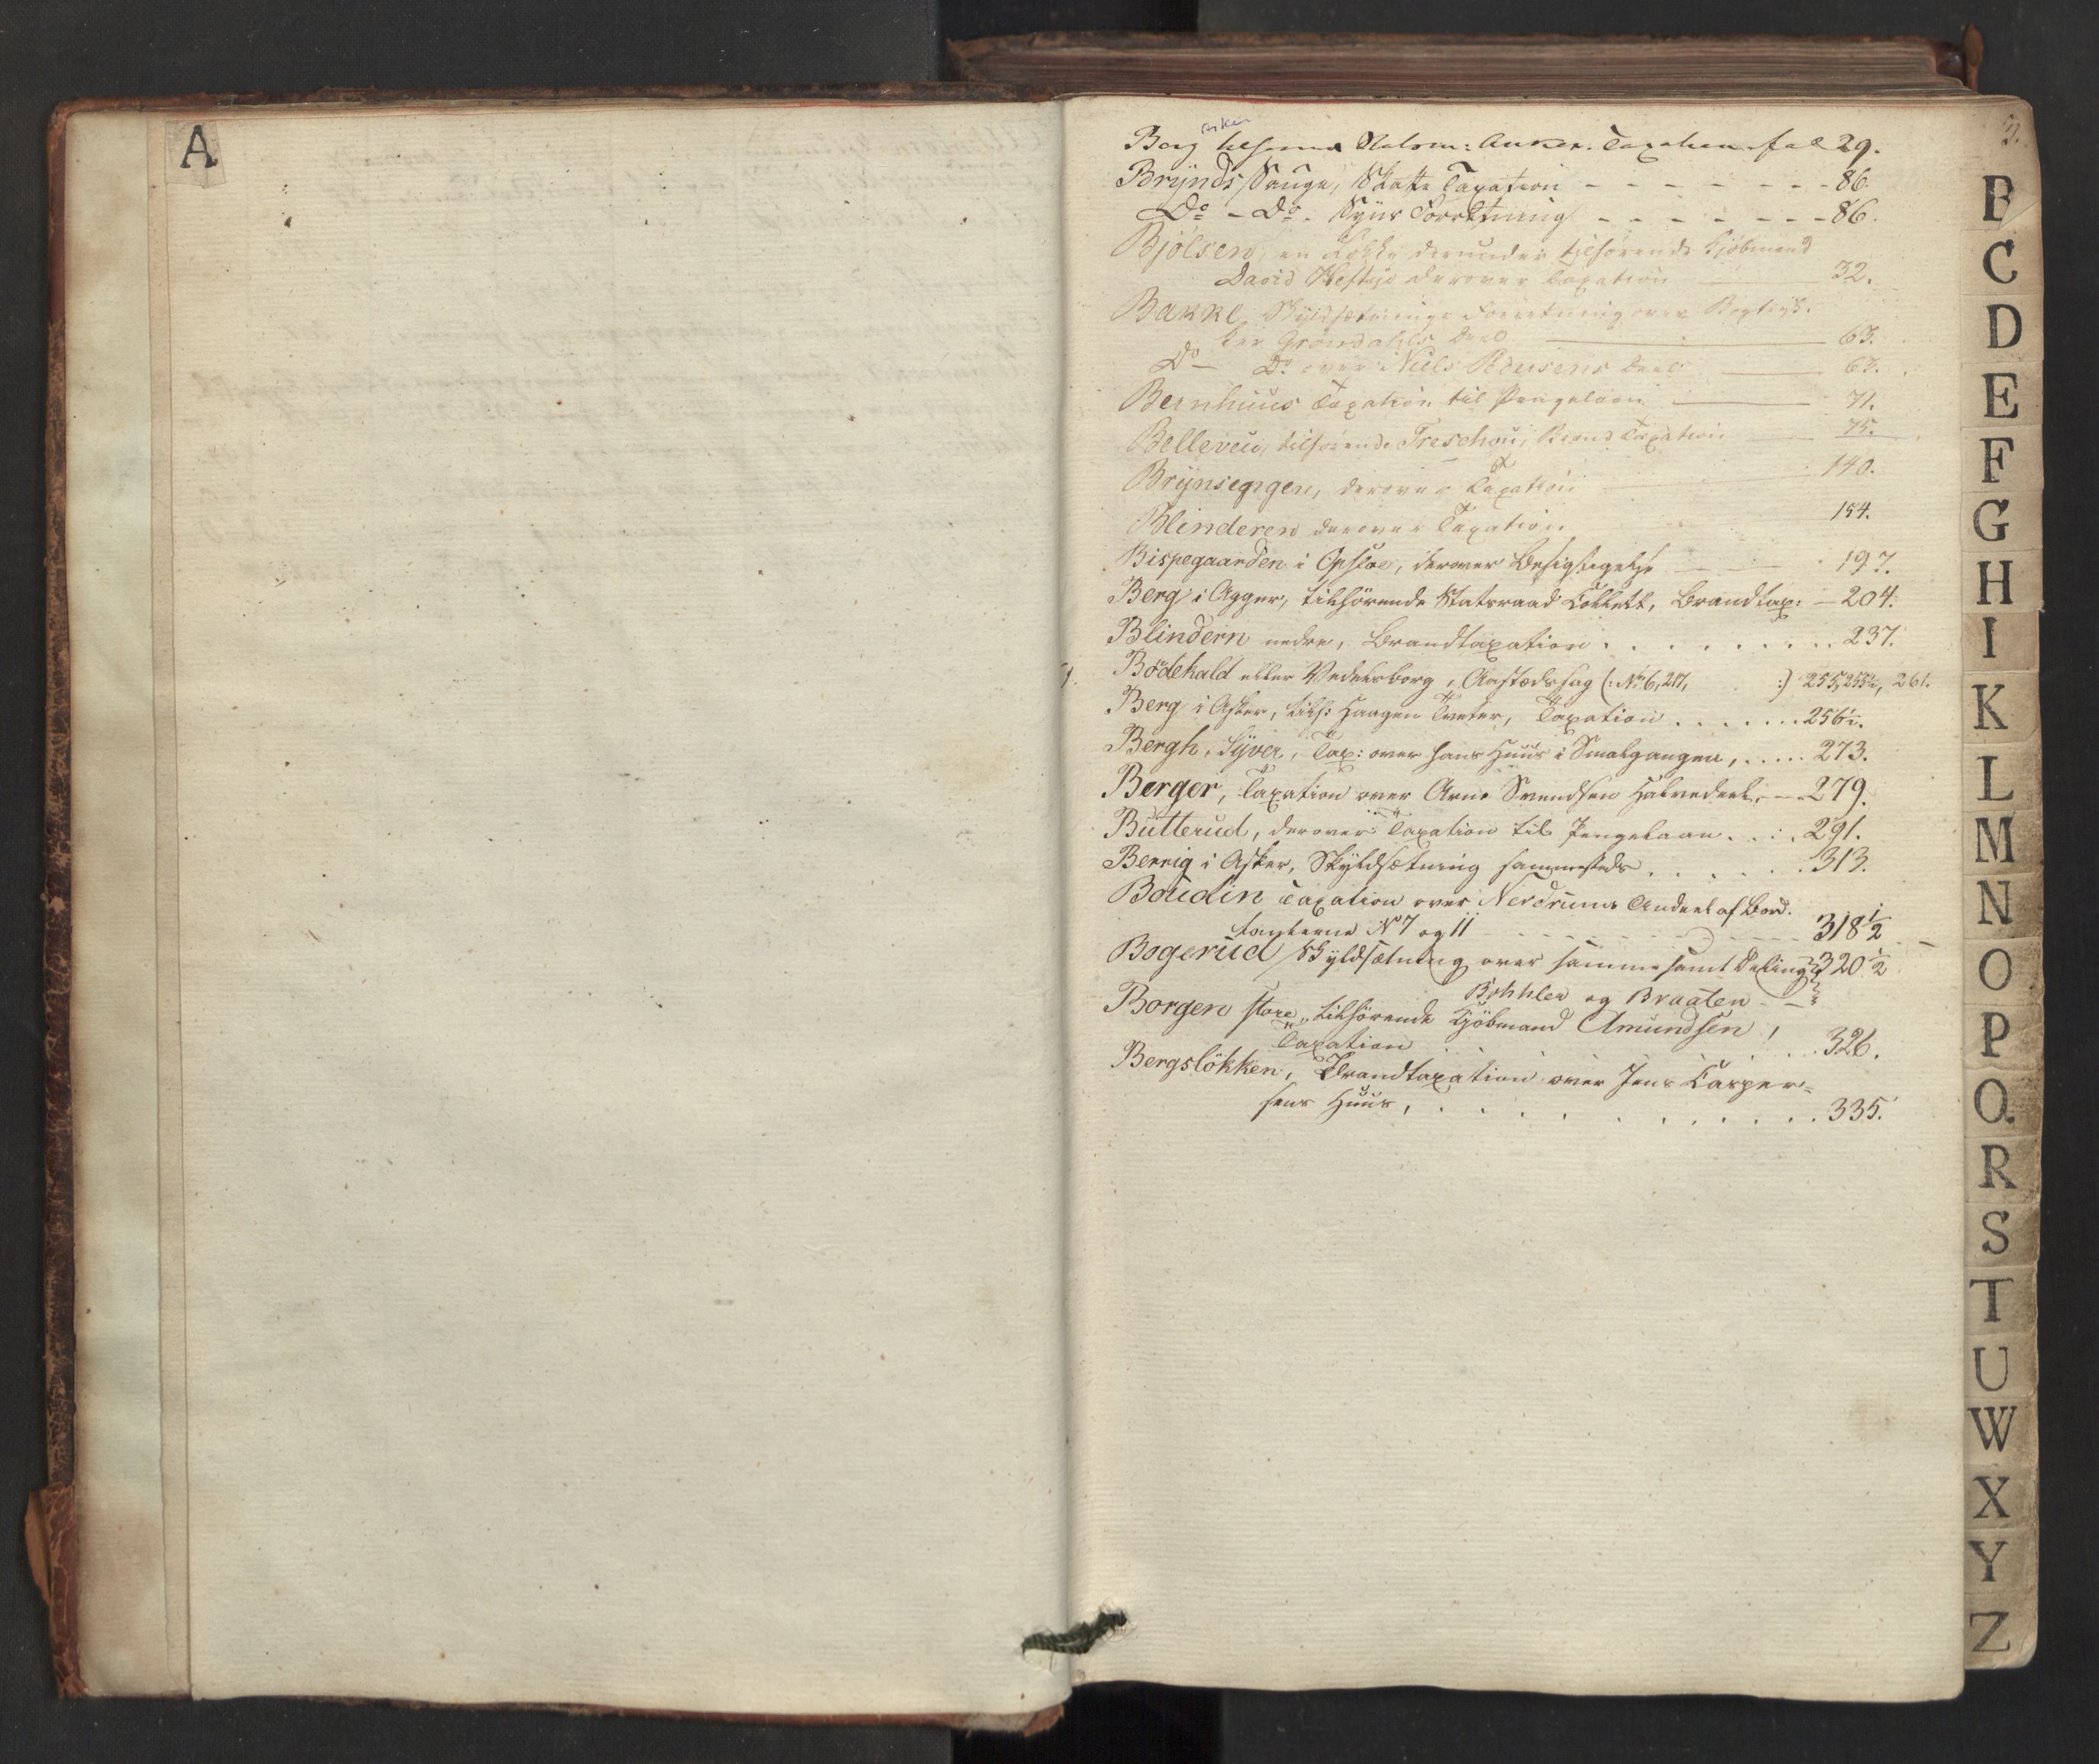 A
2.
Berg tilhørende Anker. Taxation fol 29.
Bryns Sauge, Skatte Taxation - - - - - - - 86.
Do - Do. Syns Forretning - - - - - - - 86.
Bjölsen, en Løkke derunder tilhørende Kjöbmand
David Heftye derover Taxation 32.
Bakke, Skyldsætnings Forretning over Bogtryk-
ker Grøndahls Deel 63.
Do - Do over Niels Pedersens Deel 63.
Bernhuus Taxation til Pengelaan 71.
Belleveu, tilhørende Treschou, Brand Taxation 75.
Brÿnsengen, derover Taxation 140.
Blinderen derover Taxation 154.
Bispegaarden i Opsloe, derover Besigtigelse 197.
Berg i Agger, tilhörende Statsraad Collett, Brandtax: 204.
Blindern nedre, Brandtaxation . . . . . . . . 237.
Bödekald eller Vedelsborg, Aastedssag (: No 6, 217, :) 255, 255½, 261.
Berg i Asker, tilh: Haagen Tveter, Taxation . . . . . . . 256½.
Bergh, Syver, Tax: over hans Huus i Smalgangen, . . . . . 273.
Berger, Taxation over Arne Svendsen Halvedeel, 279.
Butterud, derover Taxation til Pengelaan . . . . 291.
Berrig i Asker, Skyldsætning sammesteds . . . . . . 313.
Boudin Taxation over Nerdrums Andeel af Bord-
tomterne No 7 og 11 - - - - - - - - 318½
Bogerud Skyldsætning over samme samt Deling 320½
Böhhler og Braaten
Borgen store, tilhörende Kjöbmand Amundsen,
Taxation . . . . . . 326.
Bergslökken, Brandtaxation over Jens Casper=
sens Huus, . . . . . . . . . . 335.
B
C
D
E
F
G
H
I
K
L
M
N
O
P
Q
R
S
T
U
W
X
Y
Z